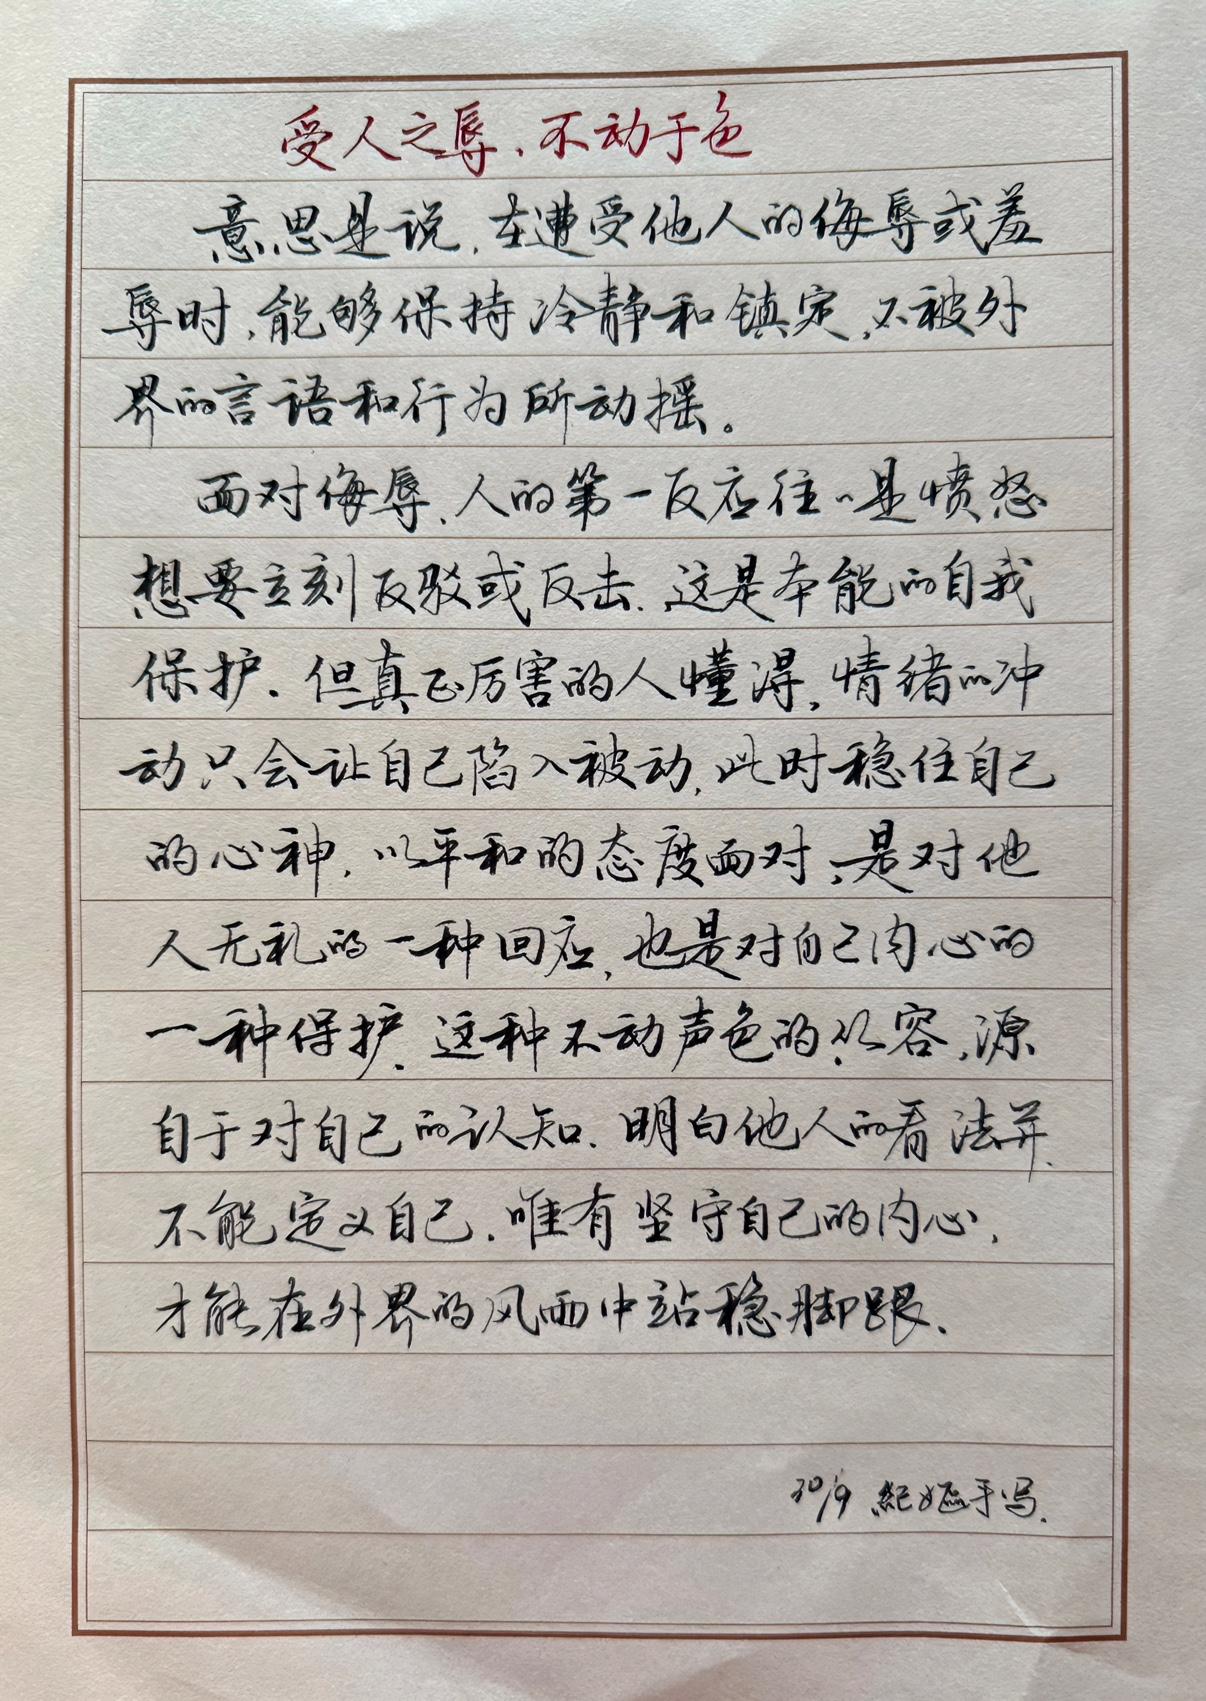 受人之辱，不动于色
意思是说，在遭受他人的侮辱或羞
辱时，能够保持冷静和镇定，不被外
界的言语和行为所动摇。
面对侮辱，人的第一反应往々是愤怒
想要立刻反驳或反击，这是本能的自我
保护。但真正厉害的人懂得，情绪的冲
动只会让自己陷入被动，此时稳住自己
的心神，以平和的态度面对，是对他
人无礼的一种回应，也是对自己内心的
一种保护。这种不动声色的从容，源
自于对自己的认知，明白他人的看法并
不能定义自己，唯有坚守自己的内心，
才能在外界的风雨中站稳脚跟。
30/9 紀嫗手写.